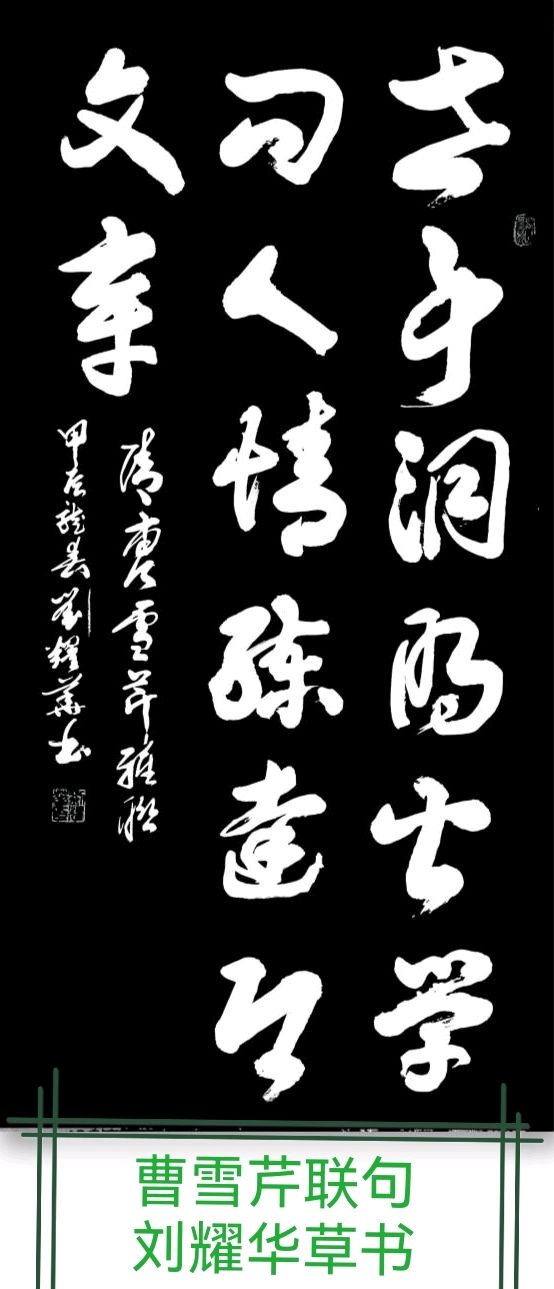 世事洞明皆学
问人情練達即
文章
清曹雪芹雅联
甲辰龍春劉耀華书
曹雪芹联句
刘耀华草书